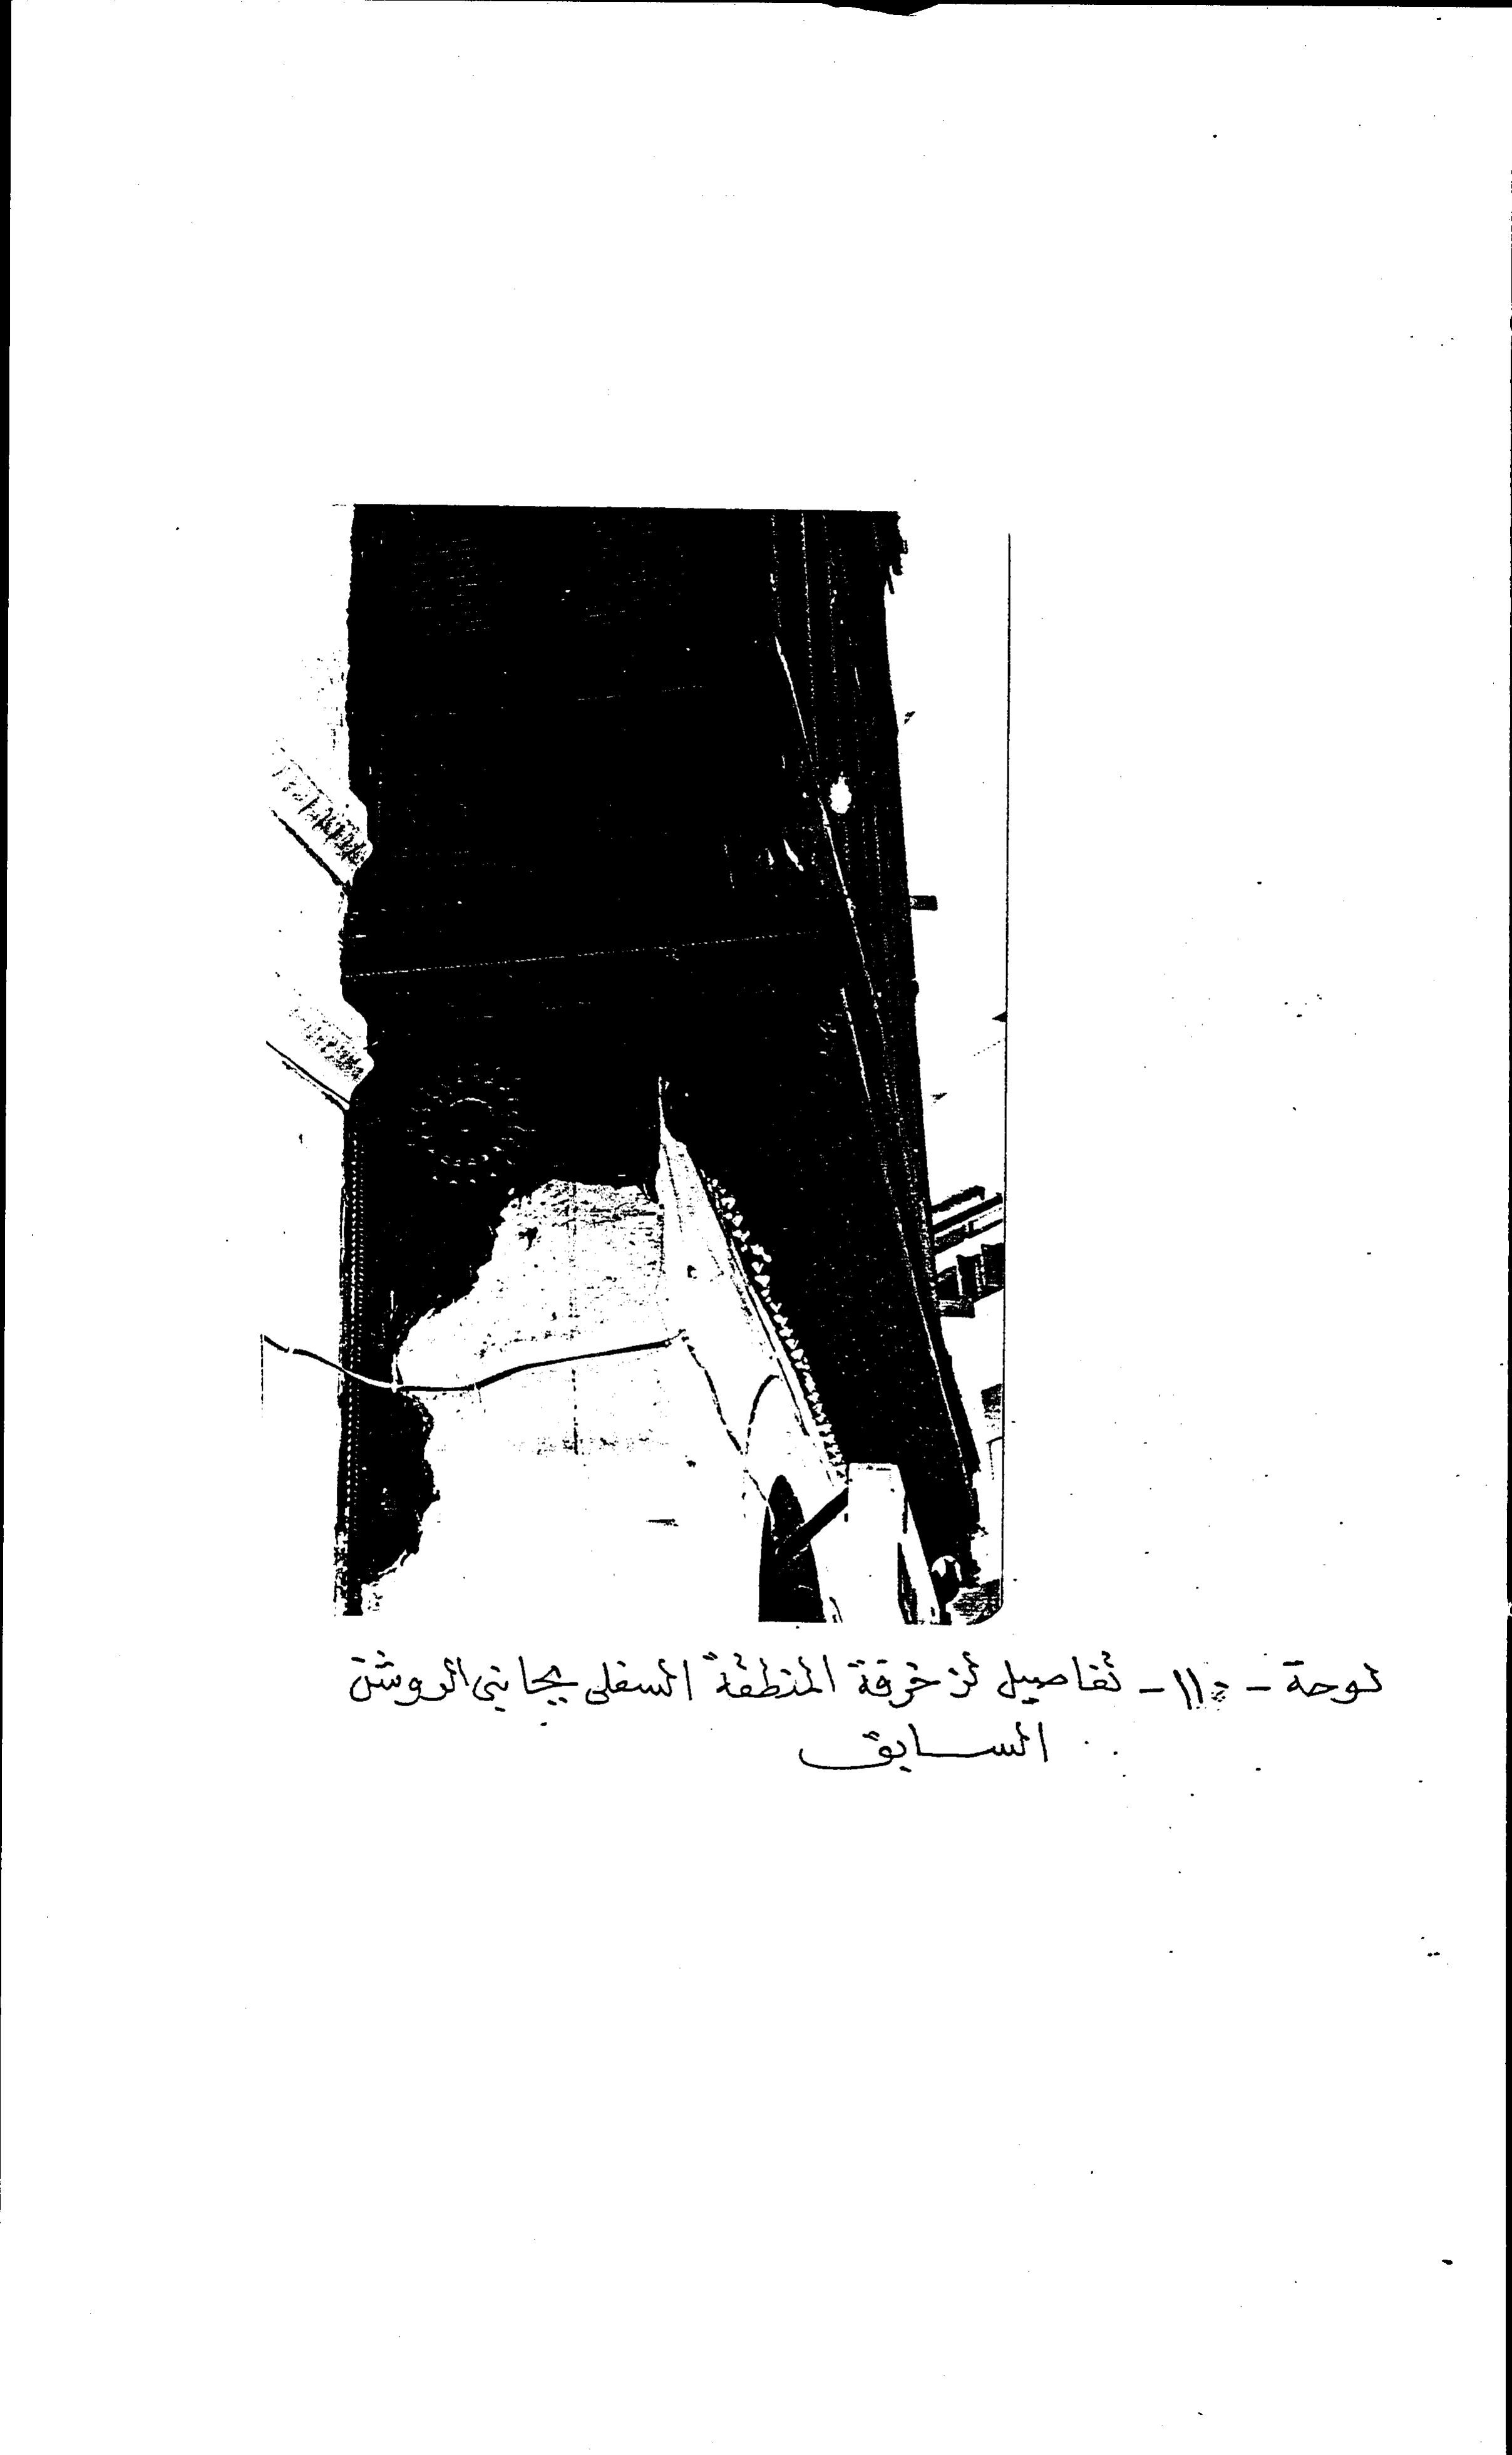 لوحة - ١١٥ - تفاصيل لزخرفة المنطقة السفلى بجانبى الروشن
السابق